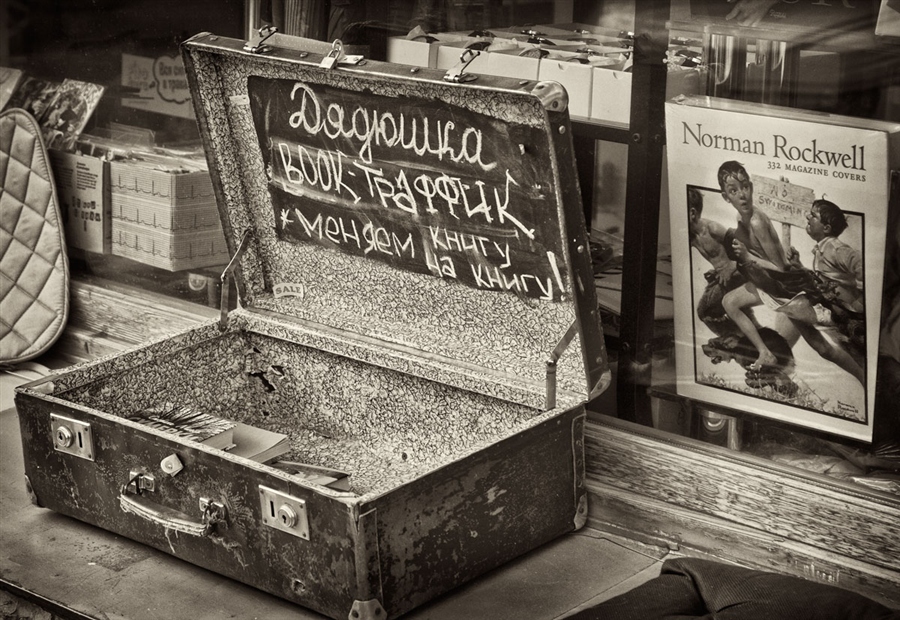 Дядюшка
BOOK-ТРАФФИК
*меняем книгу
на книгу!
SALE
Norman Rockwell
332 MAGAZINE COVERS
NO
SWIMMING